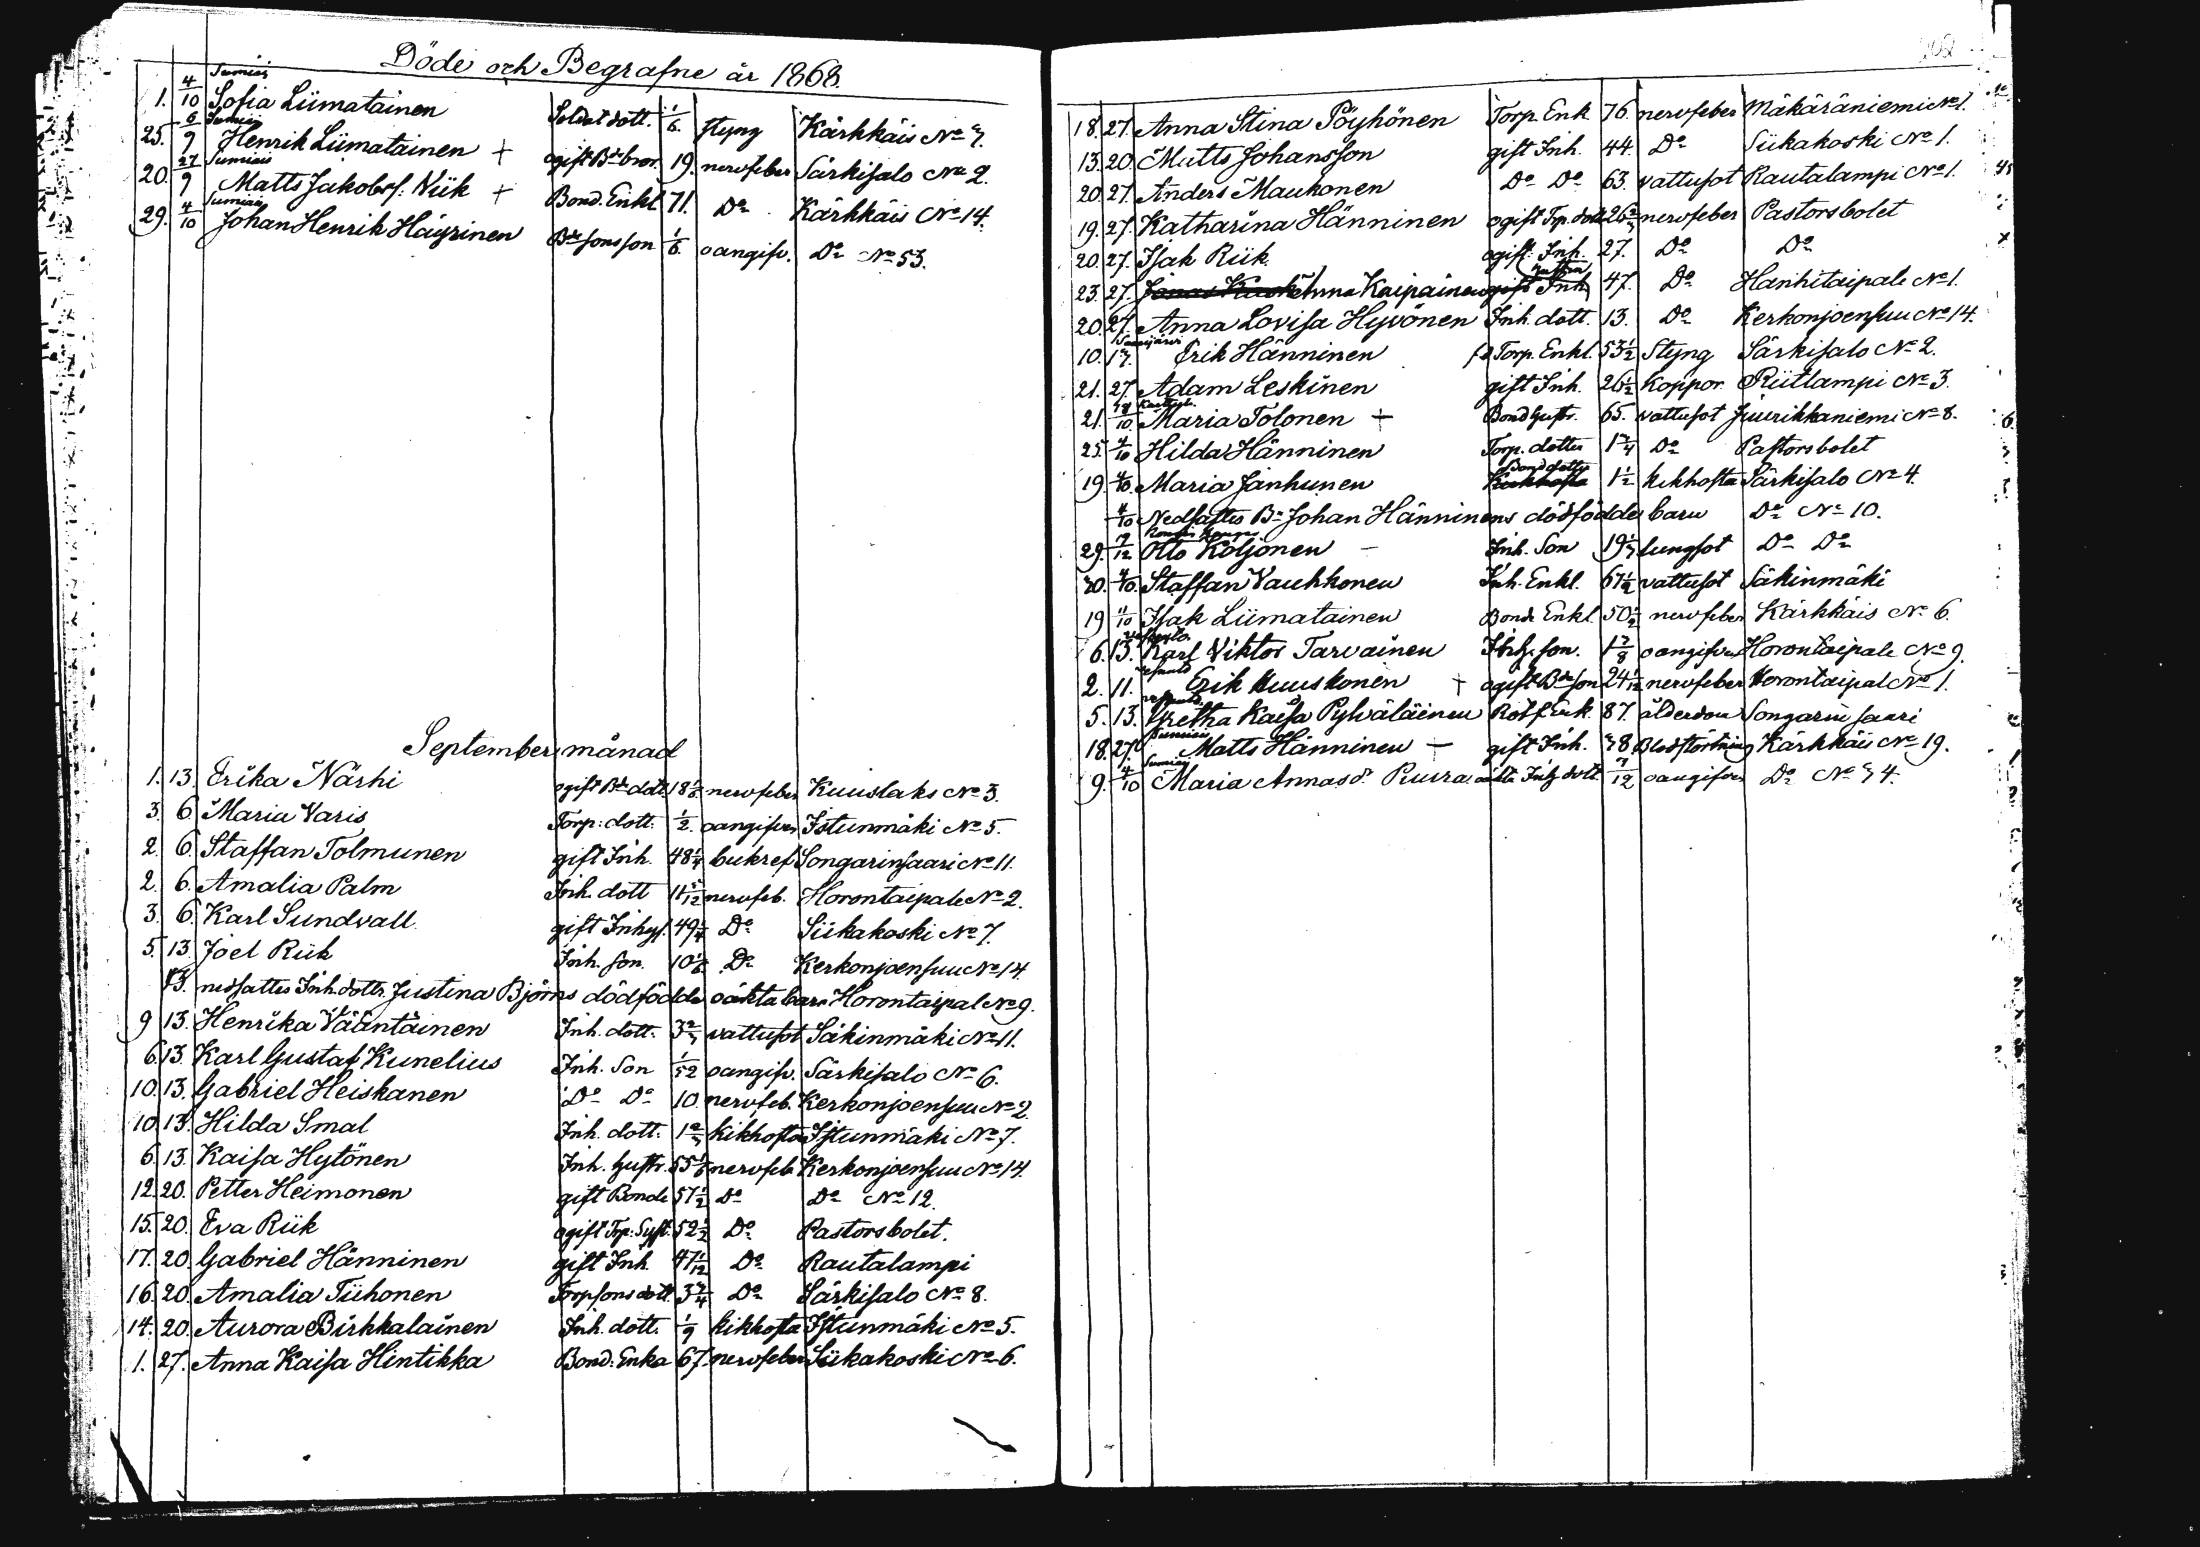 Döde och Begrafne år 1868.
Sumiais
1. 4/10 Sofia Liimatainen Soldat dott. 1/6. styng Kärkkäis No 7.
Sumiais
25. 6/9 Henrik Liimatainen + ogift Bde bror. 19. nervfeber Särkisalo No 2.
Sumiais
20. 27/9 Matts Jakobss. Niik + Bond. Enkl. 71. Do Kärkkäis No 14.
Sumiais
29. 4/10 Johan Henrik Häyrinen Bde sons son 1/6. oangifv. Do No 53.
September månad
1. 13. Erika Närhi ogift Bde dott. 18 nervfeber Kuuslaks No 3.
3. 6. Maria Varis Torp. dott. 1/2. oangifven Istunmäki No 5.
2. 6. Staffan Tolmunen gift Inh. 48 1/4 bukref Songarinsaari No 11.
2. 6. Amalia Palm Inh. dott 11 nervfeb. Horontaipale No 2.
3. 6. Karl Sundvall. gift Inhys. 49 1/4 Do Siikakoski No 7.
5. 13. Joel Riik Inh. son. 10 1/6 Do Kerkonjoensuu No 14.
13. nedsattes Inh. dottr. Justina Björns dödfödde oäkta barn Horontaipal No 9.
9 13. Henrika Vääntäinen Inh. dott. 3 2/3 vattusot Säkinmäki No 11.
6. 13. Karl Gustaf Kunelius Inh. Son 1/52 oangifv. Särkisalo No 6.
10. 13. Gabriel Heiskanen Do Do 10. nervfeb. Kerkonjoensuu No 2.
10. 13. Hilda Smal Inh. dott. 1 2/3 kikhosta Istunmäki No 7.
6. 13. Kaisa Hytönen Inh. hustr. 55 1/6 nervfeb Kerkonjoensuu No 14.
12. 20. Petter Heimonen gift Bonde 57 1/2 Do Do No 12.
15. 20. Eva Riik ogift Trp. Syst. 52 1/2 Do Pastorsbolet.
17. 20. Gabriel Hänninen gift Inh. 47 1/12 Do Rautalampi
16. 20. Amalia Tiihonen Torpsons dott. 3 3/4 Do Särkisalo No 8.
14. 20. Aurora Birkkalainen Inh. dott. 1/9 kikhosta Istunmäki No 5.
1. 27. Anna Kaisa Hintikka Bond. Enka 67. nervfeber Siikakoski No 6.
202
18. 27. Anna Stina Pöyhönen Torp. Enk 76. nervfeber Mäkäräniemi No 1.
13. 20. Matts Johansson gift Inh. 44. Do Siikakoski No 1.
20. 27. Anders Maukonen Do Do 63. vattusot Rautalampi No 1.
19. 27. Katharina Hänninen ogift Trp. dott. 26 2/3 nervfeber Pastorsbolet
20. 27. Isak Riik ogift. Inh. 27. Do Do
hustru
23. 27. Anna Kaipainen gift Inh. 47. Do Hanhitaipale No 1.
20. 27. Anna Lovisa Hyvönen Inh. dott. 13. Do Kerkonjoensuu No 14.
10. 17. Erik Hänninen fd Torp. Enkl. 53 1/2 Styng Särkisalo No 2.
21. 27. Adam Leskinen gift Inh. 26 1/2 koppor. Riitlampi No 3.
21. 18/10. Maria Tolonen + Bond hustr. 65. vattusot Juurikkaniemi No 8.
25. 4/10 Hilda Hänninen Torp. dotter 1 3/4 Do Pastorsbolet
Bond dotter
19. 4/10. Maria Janhunen Kickhosta 1 1/2 kikhosta Särkisalo No 4.
4/10 Nedsattes Bde Johan Hänninens dödfödde barn Do No 10.
29. 19/12 Otto Koljonen Inh. Son 19 1/3 lungsot Do Do
20. 4/10. Staffan Vauhkonen Inh. Enkl. 67 1/2 vattusot Säkinmäki
19 11/10 Isak Liimatainen Bond Enkl. 50 1/2 nervfeber Kärkkäis No 6.
6. 13. Karl Viktor Tarvainen Inhs. son. 1 7/8 oangifven Horontaipale No 9.
2. 11. Erik Kuuskonen + ogift Bde son 24 nervfeber Horontaipal No 1.
5. 13. Gretha Kaisa Pylväläinen Rotf. Enk. 87. ålderdom Songarinsaari
Sumiais
18. 27. Matts Hänninen gift Inh. 38 Blodstörtning Kärkkäis No 19.
Sumiais
9. 4/10 Maria Annasdr Puura oäkta Inhs dott. 7/12 oangifven Do No 34.